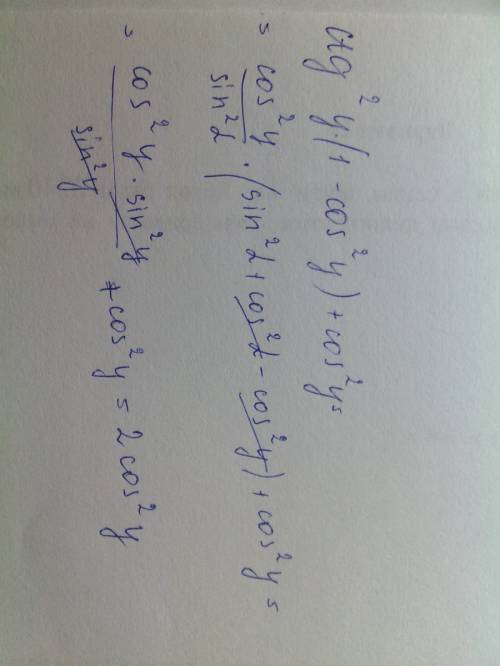 ctg² y(1 - cos² y) + cos² y =
= cos² y / sin² α · (sin² α + cos² α - cos² y) + cos² y =
= cos² y · sin² y / sin² y + cos² y = 2 cos² y